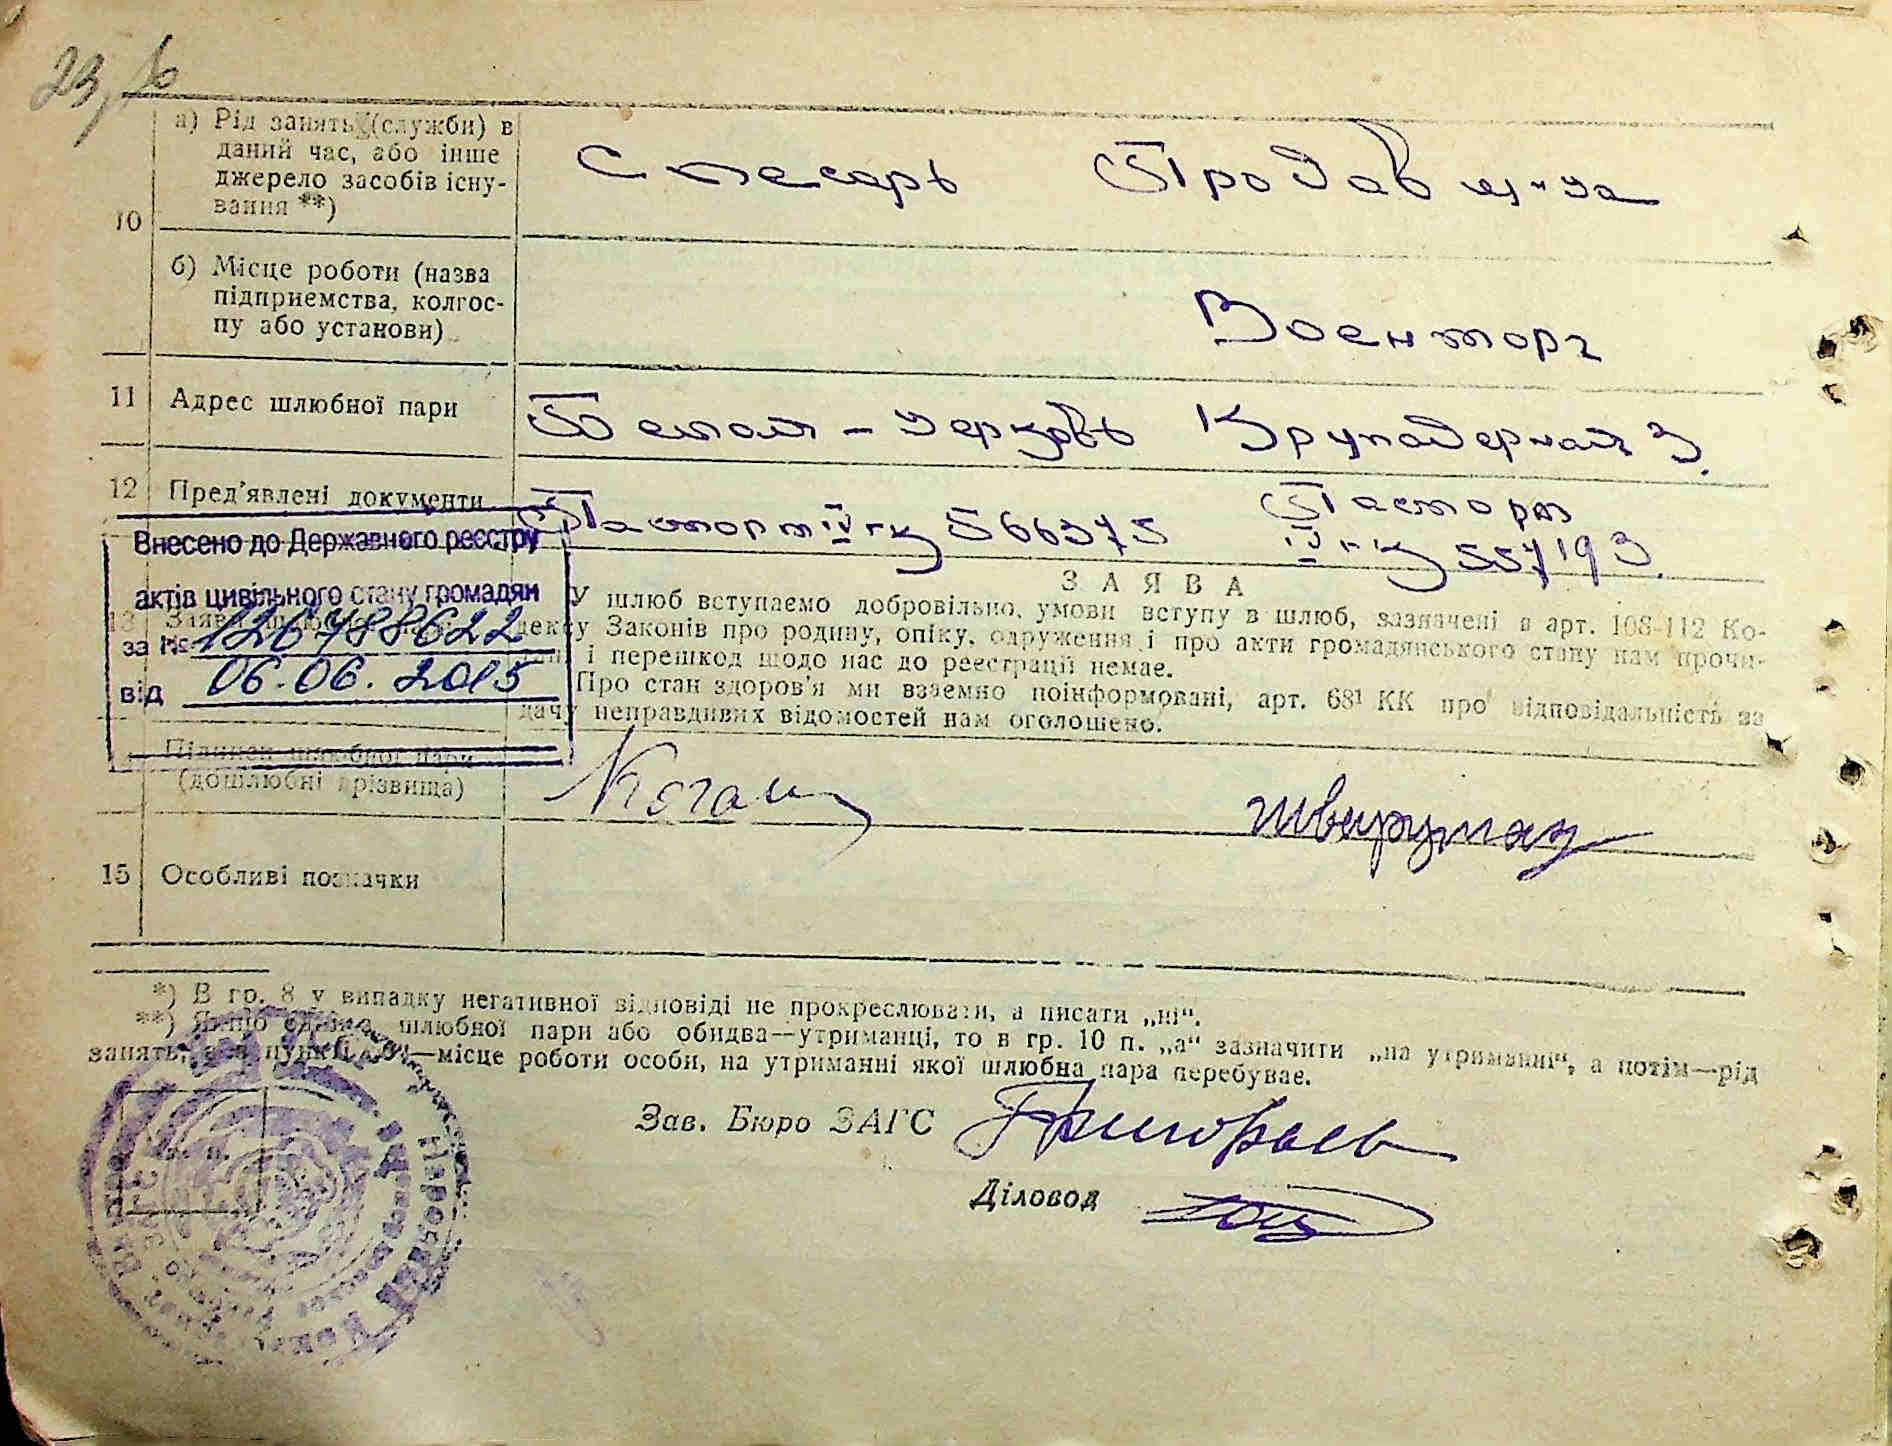 23
а) Рід занять (служби) в
даний час, або інше
джерело засобів існу-
вання **)
Слесарь Продавщица
10
б) Місце роботи (назва
підприємства, колгос-
пу або установи)
Военторг
11 Адрес шлюбної пари
Белая-Церковь Круподерная 3.
12 Пред'явлені документи
Паспорт IV гк 566375 Паспорт
IV гк 557193.
Внесено до Державного реєстру
актів цивільного стану громадян
за № 1126788622
від 06.06.2015
ЗАЯВА
13
У шлюб вступаємо добровільно, умови вступу в шлюб, зазначені в арт. 108-112 Ко-
дексу Законів про родину, опіку, одруження і про акти громадянського стану нам прочи-
тані і перешкод щодо нас до реєстрації немає.
Про стан здоров'я ми взаємно поінформовані, арт. 68¹ КК про відповідальність за
дачу неправдивих відомостей нам оголошено.
Підписи шлюбної пари
(дошлюбні прізвища)
Коган
15 Особливі позначки
*) В гр. 8 у випадку негативної відповіді не прокреслювати, а писати „ні“.
**) Якщо шлюбної пари або обидва—утриманці, то в гр. 10 п. „а“ зазначити „на утриманні“, а потім—рід
занять, —місце роботи особи, на утриманні якої шлюбна пара перебуває.
Зав. Бюро ЗАГС Григорьев
Діловод